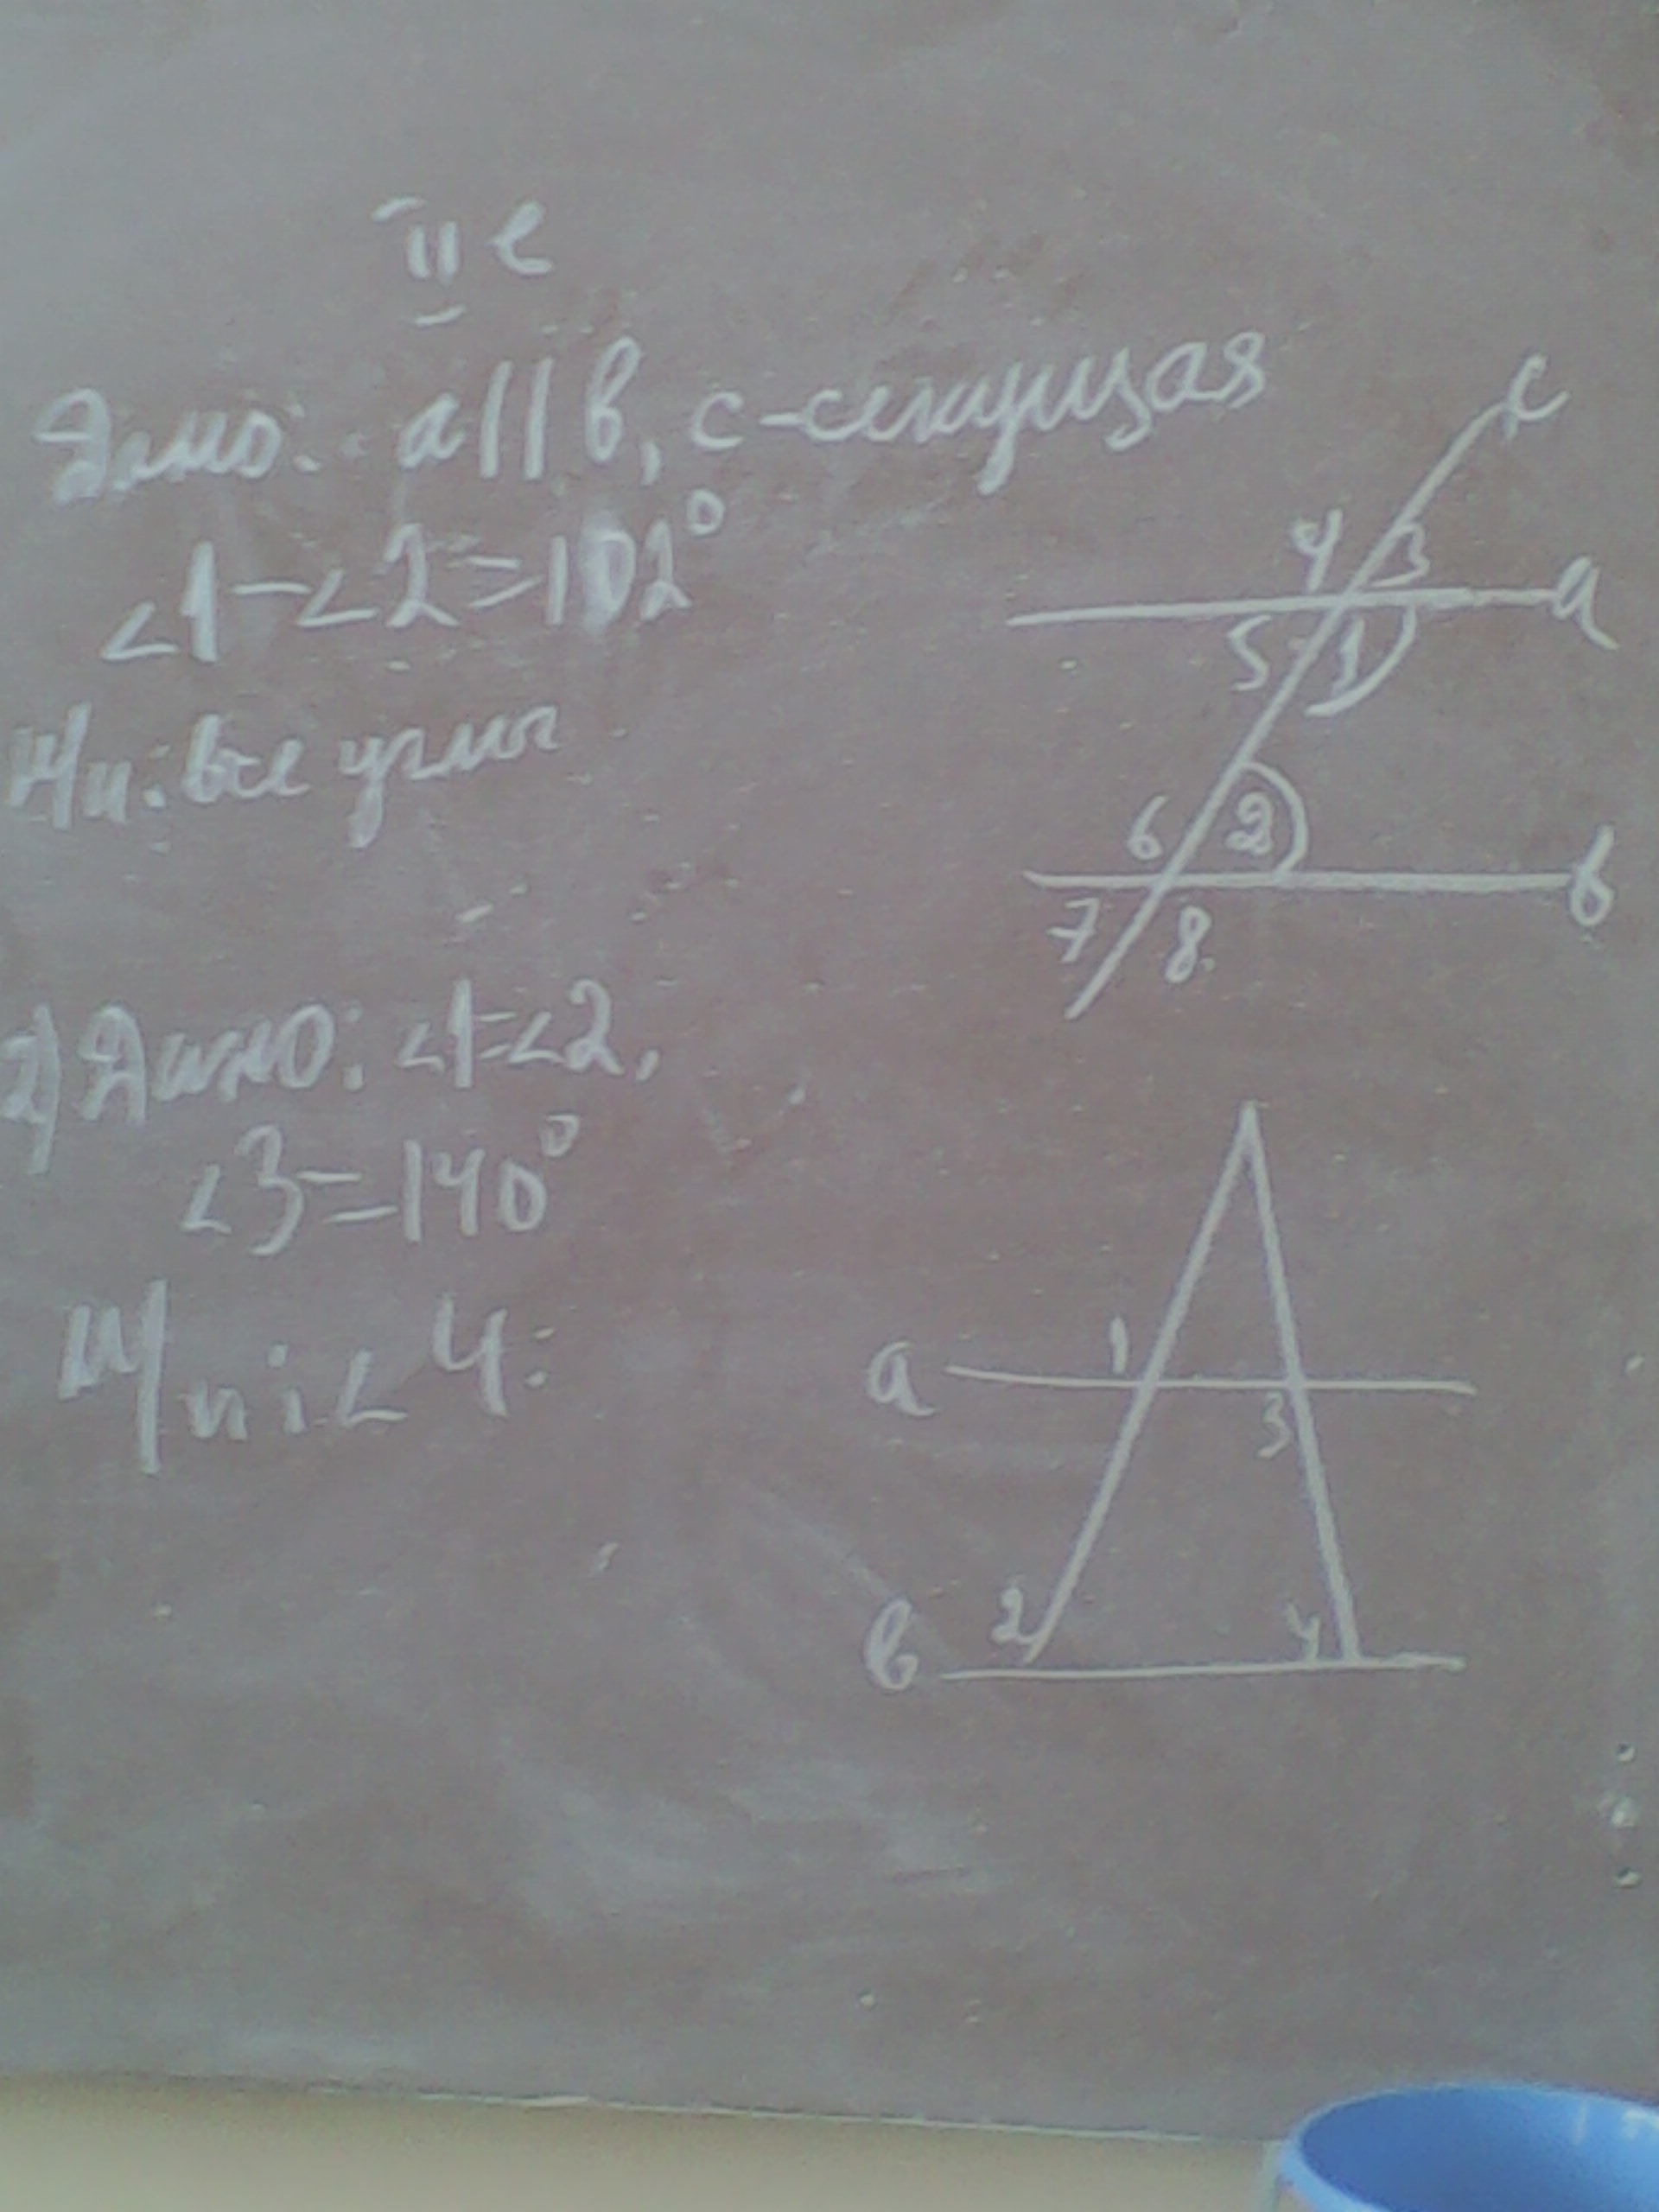 II в
Дано: a||b, c-секущая
∠1-∠2=102°
Н/и: все углы
c
4 3
a
5 1
6 2
b
7 8
2) Дано: ∠1=∠2,
∠3=140°
Н/и: ∠4:
1
a
3
2 4
b